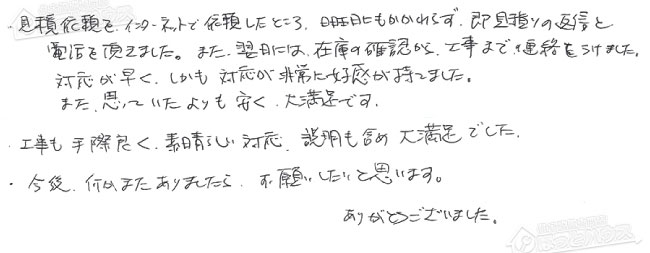 ・見積依頼を、インターネットで依頼したところ、日曜日にもかかわらず、即見積りの返信と
電話を頂きました。また、翌日には、在庫の確認から、工事まで連絡をうけました。
対応が早く、しかも対応が非常に好感が持てました。
また、思っていたよりも安く、大満足です。
・工事も手際良く、素晴らしい対応、説明も含め大満足でした。
・今後、何かまたありましたら、お願いしたいと思います。
ありがとうございました。